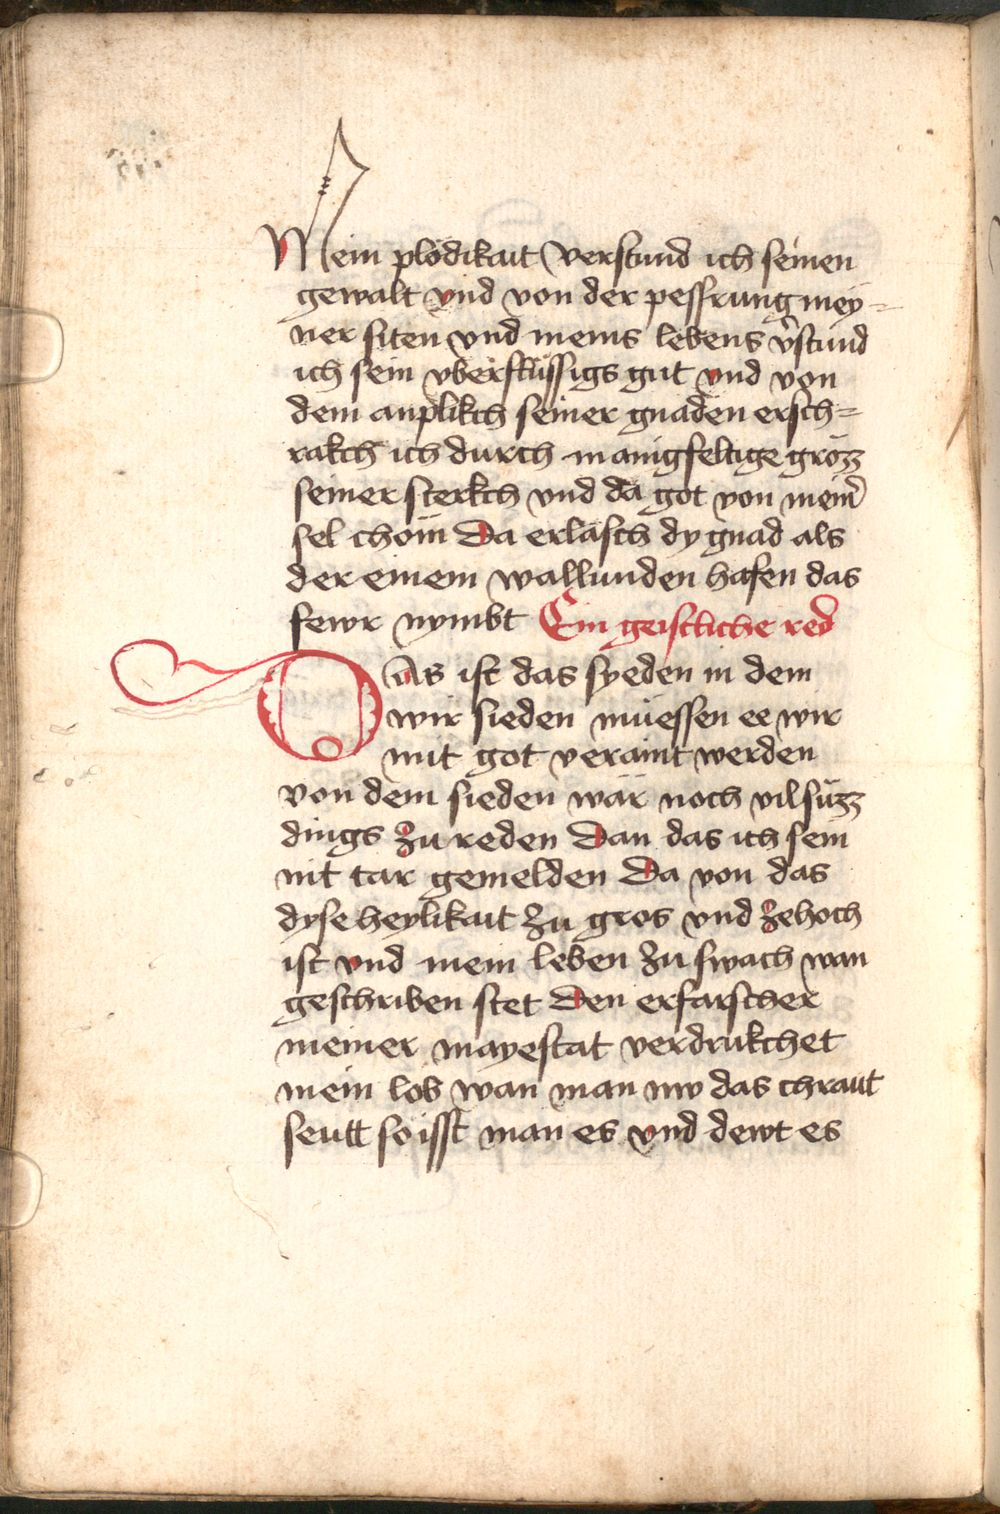 Mein plödikait verstund ich seinen
gewalt vnd von der pessrung mey=
ner siten vnd meins lebens v̉stund
ich sein vberflüssigs gut vnd von
dem anplikch seiner gnaden ersch=
rakch ich durch manigfeltige grözz
seiner sterkch vnd da got von mein̉
sel chom Da erlasch dy gnad als
der einem wallunden hafen das
fewr nymbt Ein geistliche red
DAs ist das syeden in dem
wir sieden müessen ee wir
mit got veraint werden
von dem sieden wär noch vil süzz
dings zu reden Dan das ich sein
nit tar gemelden Da von das
dyse heylikait zu gros vnd zehoch
ist vnd mein leben zu swach wan
geschriben stet Den erfarscher
meiner mayestat verdrukchet
mein lob wan man nw das chraut
seutt so isst man es vnd dewt es